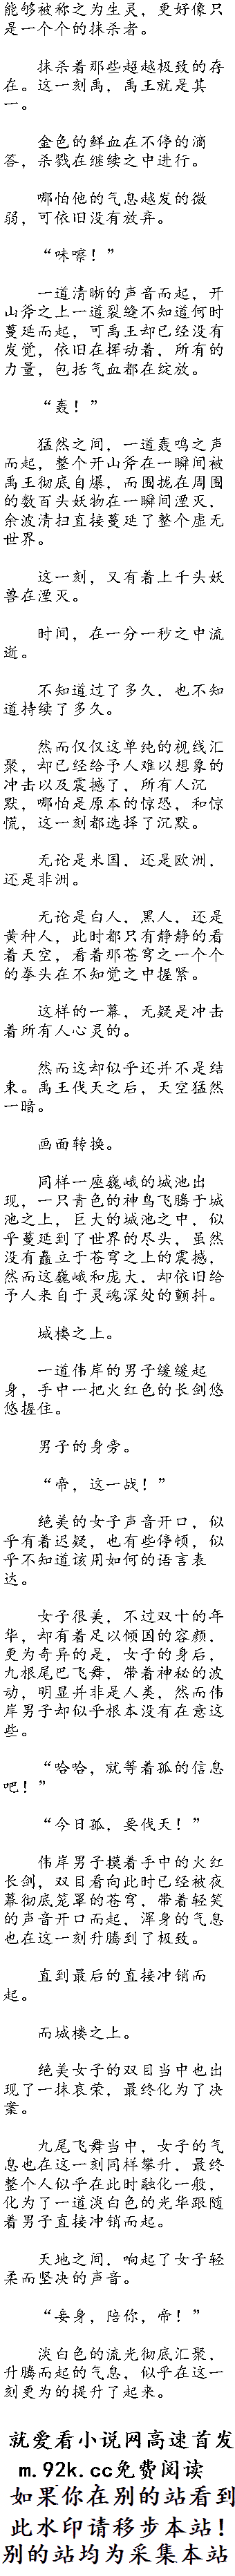 能够被称之为生灵，更好像只
是一个个的抹杀者。
抹杀着那些超越极致的存
在。这一刻禹，禹王就是其
一。
金色的鲜血在不停的滴
答，杀戮在继续之中进行。
哪怕他的气息越发的微
弱，可依旧没有放弃。
“咔嚓！”
一道清晰的声音而起，开
山斧之上一道裂缝不知道何时
蔓延而起，可禹王却已经没有
发觉，依旧在挥动着，所有的
力量，包括气血都在绽放。
“轰！”
猛然之间，一道轰鸣之声
而起，整个开山斧在一瞬间被
禹王彻底自爆，而围拢在周围
的数百头妖物在一瞬间湮灭，
余波清扫直接蔓延了整个虚无
世界。
这一刻，又有着上千头妖
兽在湮灭。
时间，在一分一秒之中流
逝。
不知道过了多久，也不知
道持续了多久。
然而仅仅这单纯的视线汇
聚，却已经给予人难以想象的
冲击以及震撼了，所有人沉
默，哪怕是原本的惊恐，和惊
慌，这一刻都选择了沉默。
无论是米国，还是欧洲，
还是非洲。
无论是白人，黑人，还是
黄种人，此时都只有静静的看
着天空，看着那苍穹之一个个
的拳头在不知觉之中握紧。
这样的一幕，无疑是冲击
着所有人心灵的。
然而这却似乎还并不是结
束。禹王伐天之后，天空猛然
一暗。
画面转换。
同样一座巍峨的城池出
现，一只青色的神鸟飞腾于城
池之上，巨大的城池之中，似
乎蔓延到了世界的尽头，虽然
没有矗立于苍穹之上的震撼，
然而这巍峨和庞大，却依旧给
予人来自于灵魂深处的颤抖。
城楼之上。
一道伟岸的男子缓缓起
身，手中一把火红色的长剑悠
悠握住。
男子的身旁。
“帝，这一战！”
绝美的女子声音开口，似
乎有着迟疑，也有些停顿，似
乎不知道该用如何的语言表
达。
女子很美，不过双十的年
华，却有着足以倾国的容颜，
更为奇异的是，女子的身后，
九根尾巴飞舞，带着神秘的波
动，明显并非是人类，然而伟
岸男子却似乎根本没有在意这
些。
“哈哈，就等着孤的信息
吧！”
“今日孤，要伐天！”
伟岸男子摸着手中的火红
长剑，双目看向此时已经被夜
幕彻底笼罩的苍穹，带着轻笑
的声音开口而起，浑身的气息
也在这一刻升腾到了极致。
直到最后的直接冲销而
起。
而城楼之上。
绝美女子的双目当中也出
现了一抹哀荣，最终化为了决
案。
九尾飞舞当中，女子的气
息也在这一刻同样攀升，最终
整个人似乎在此时融化一般，
化为了一道淡白色的光华跟随
着男子直接冲销而起。
天地之间，响起了女子轻
柔而坚决的声音。
“妾身，陪你，帝！”
淡白色的流光彻底汇聚，
升腾而起的气息，似乎在这一
刻更为的提升了起来。
就爱看小说网高速首发
m.92k.cc免费阅读
如果你在别的站看到
此水印请移步本站！
别的站均为采集本站